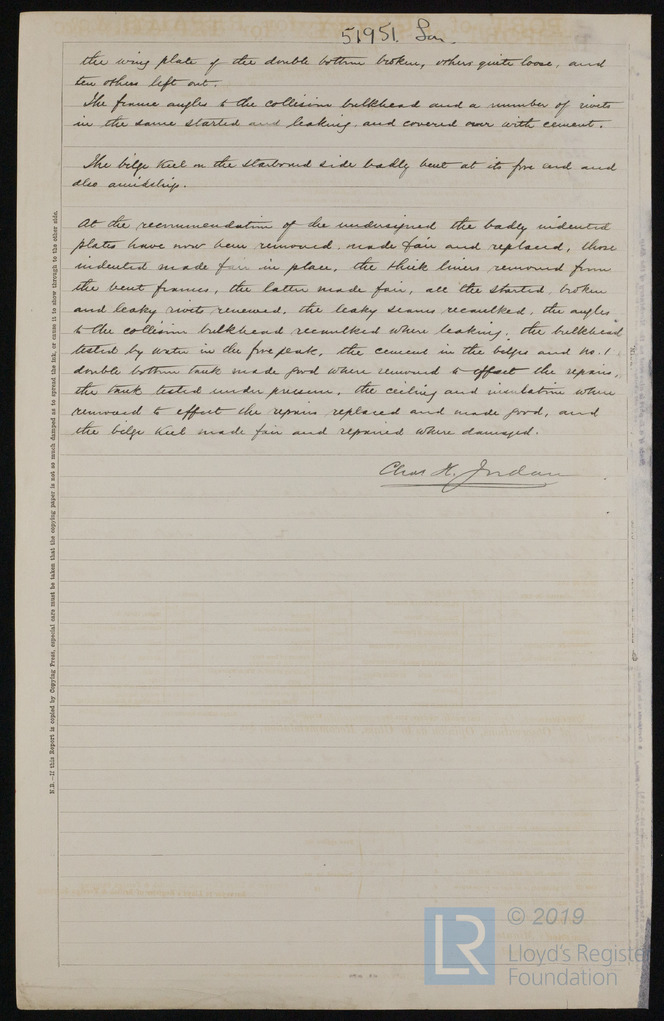 51951 Lon.
the wing plate of the double bottom broken, others quite loose, and
ten others left out.
The frame angles to the collision bulkhead and a number of rivets
in the same started and leaking and covered over with cement.
The bilge keel on the starboard side badly bent at its fore end and
also amidships.
At the recommendation of the undersigned the badly indented
plates have now been removed made fair and replaced, those
indented made fair in place, the thick liners removed from
the bent frames, the latter made fair, all the started, broken
and leaky rivets renewed, the leaky seams recaulked, the angles
to the collision bulkhead recaulked where leaking, the bulkhead
tested by water in the fore peak, the cement in the bilges and No. 1
double bottom tank made good where removed to effect the repairs,
the tank tested under pressure, the ceiling and insulation where
removed to effect the repairs replaced and made good, and
the bilge keel made fair and repaired where damaged.
Chas H. Jordan
N.B.—If this Report is copied by Copying Press, especial care must be taken that the copying paper is not so much damped as to spread the ink, or cause it to show through to the other side.
LR
© 2019
Lloyd's Register
Foundation